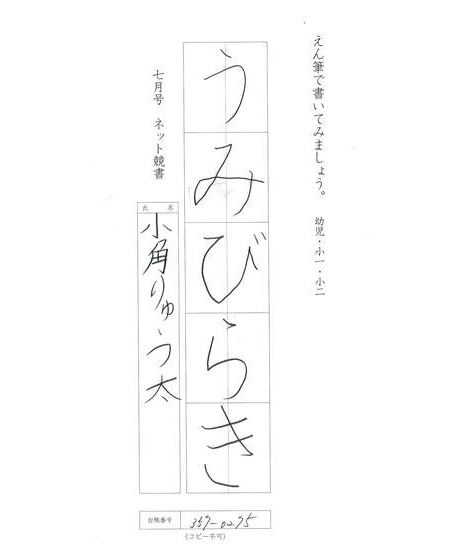 えん筆で書いてみましょう。 幼児・小一・小二
うみびらき
七月号 ネット競書
氏名
小角りゅう太
台帳番号 359-0295
(コピー不可)